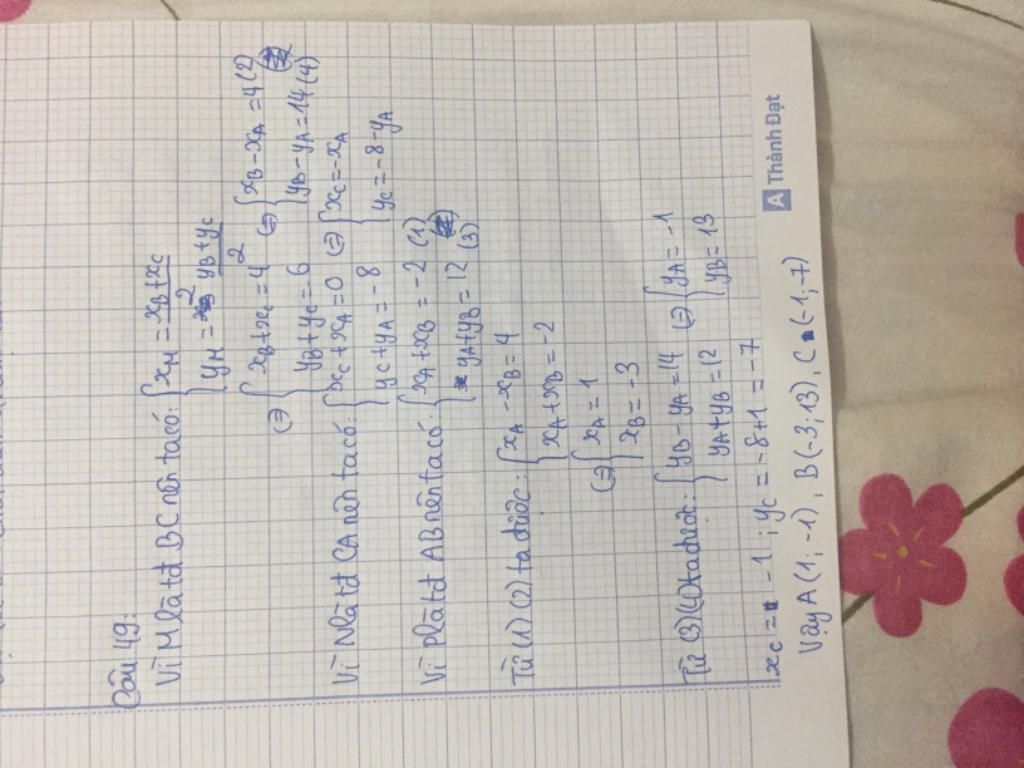 Câu 49:
Vì M là tđ BC nên ta có: { x_M = (x_B + x_C)/2
{ y_M = (y_B + y_C)/2
(=) { x_B + x_C = 4 (=) { x_B - x_A = 4 (2)
{ y_B + y_C = 6 { y_B - y_A = 14 (4)
Vì N là tđ CA nên ta có: { x_C + x_A = 0 (=) { x_C = -x_A
{ y_C + y_A = -8 { y_C = -8 - y_A
Vì P là tđ AB nên ta có: { x_A + x_B = -2 (1)
{ y_A + y_B = 12 (3)
Từ (1) (2) ta được: { x_A - x_B = 4
{ x_A + x_B = -2
(=) { x_A = 1
{ x_B = -3
Từ (3)(4) ta được: { y_B - y_A = 14 (=) { y_A = -1
{ y_A + y_B = 12 { y_B = 13
x_C = -1 ; y_C = -8 + 1 = -7
Vậy A (1; -1), B (-3; 13), C (-1; -7)
A Thành Đạt